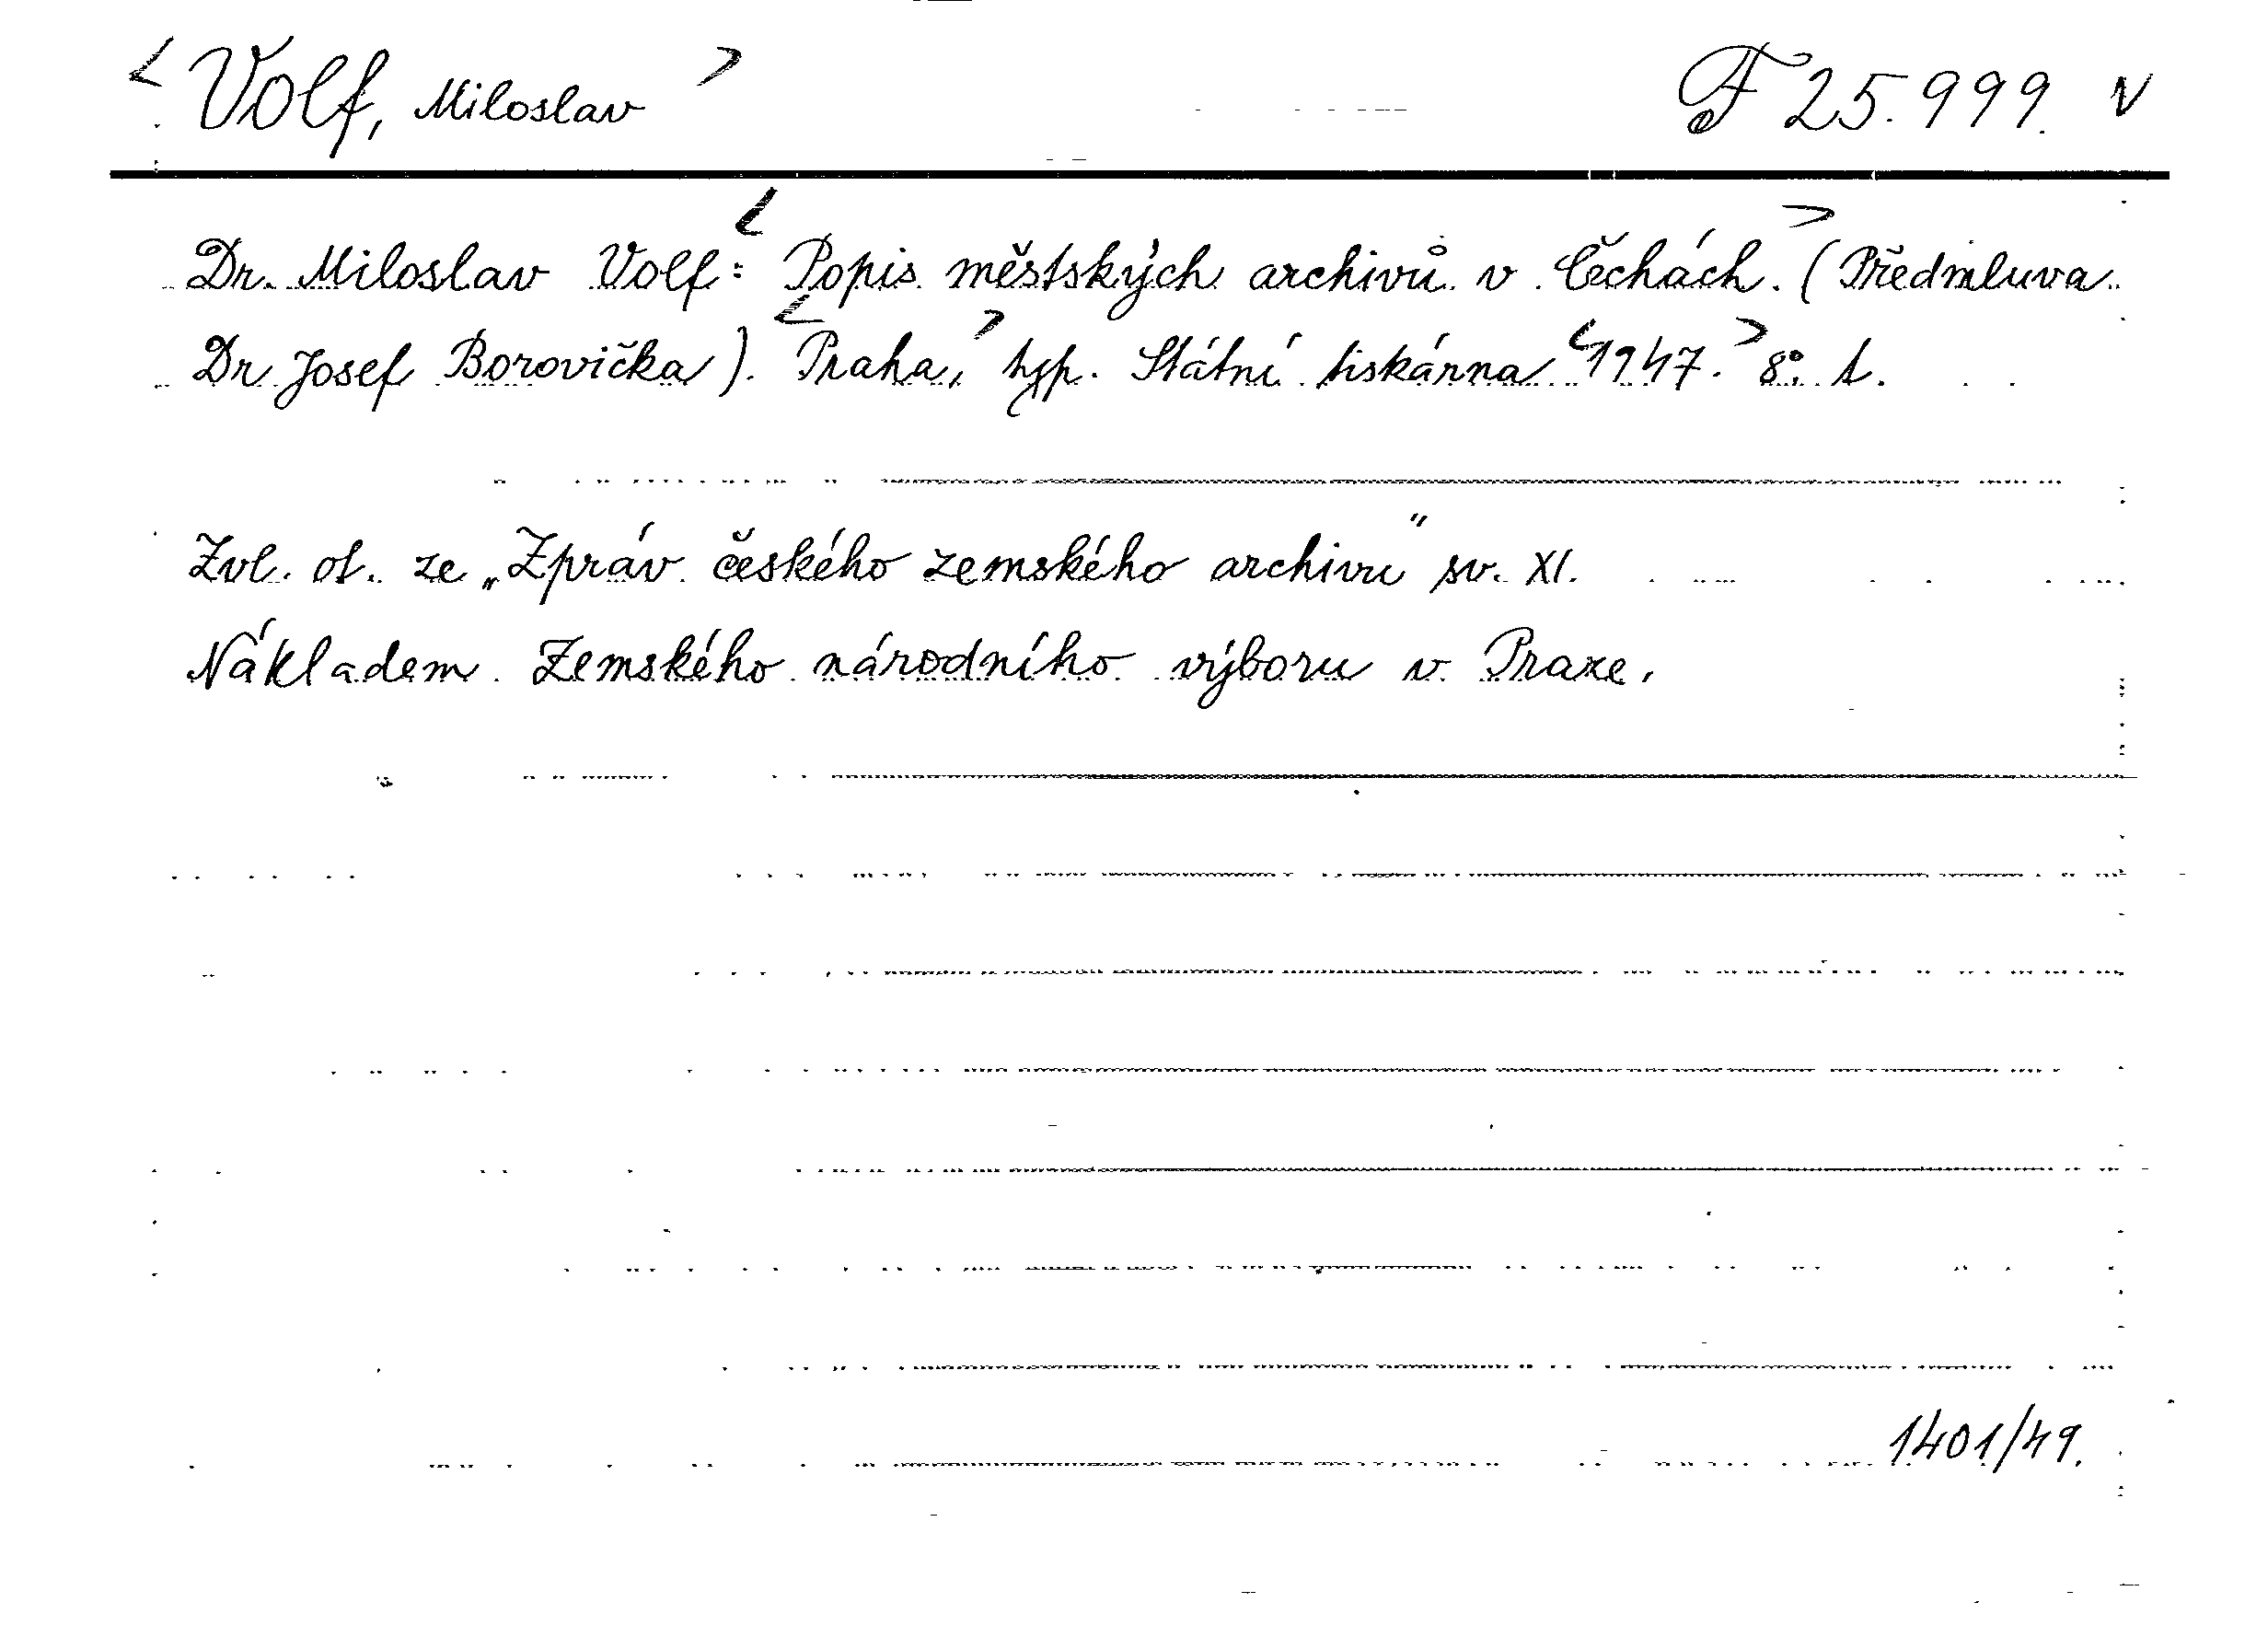 < Volf, Miloslav > F 25.999. V
Dr. Miloslav Volf: < Popis městských archivů v Čechách. > (Předmluva
Dr Josef Borovička). < Praha, > typ. Státní tiskárna < 1947. > 8° 1.
Zvl. ot. ze „Zpráv českého zemského archivu" sv. XI.
Nákladem Zemského národního výboru v Praze.
1401/49.